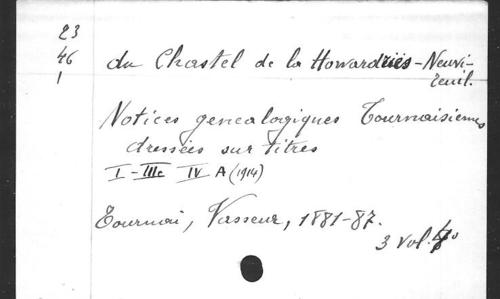 23
46
1
du Chastel de la Howardries-Neuvi-
reuil.
Notices genealogiques Tournaisiennes
dressées sur titres
I - IIIc IV A (1914)
Tournai, Vasseur, 1881-87.
3 vol. 4º